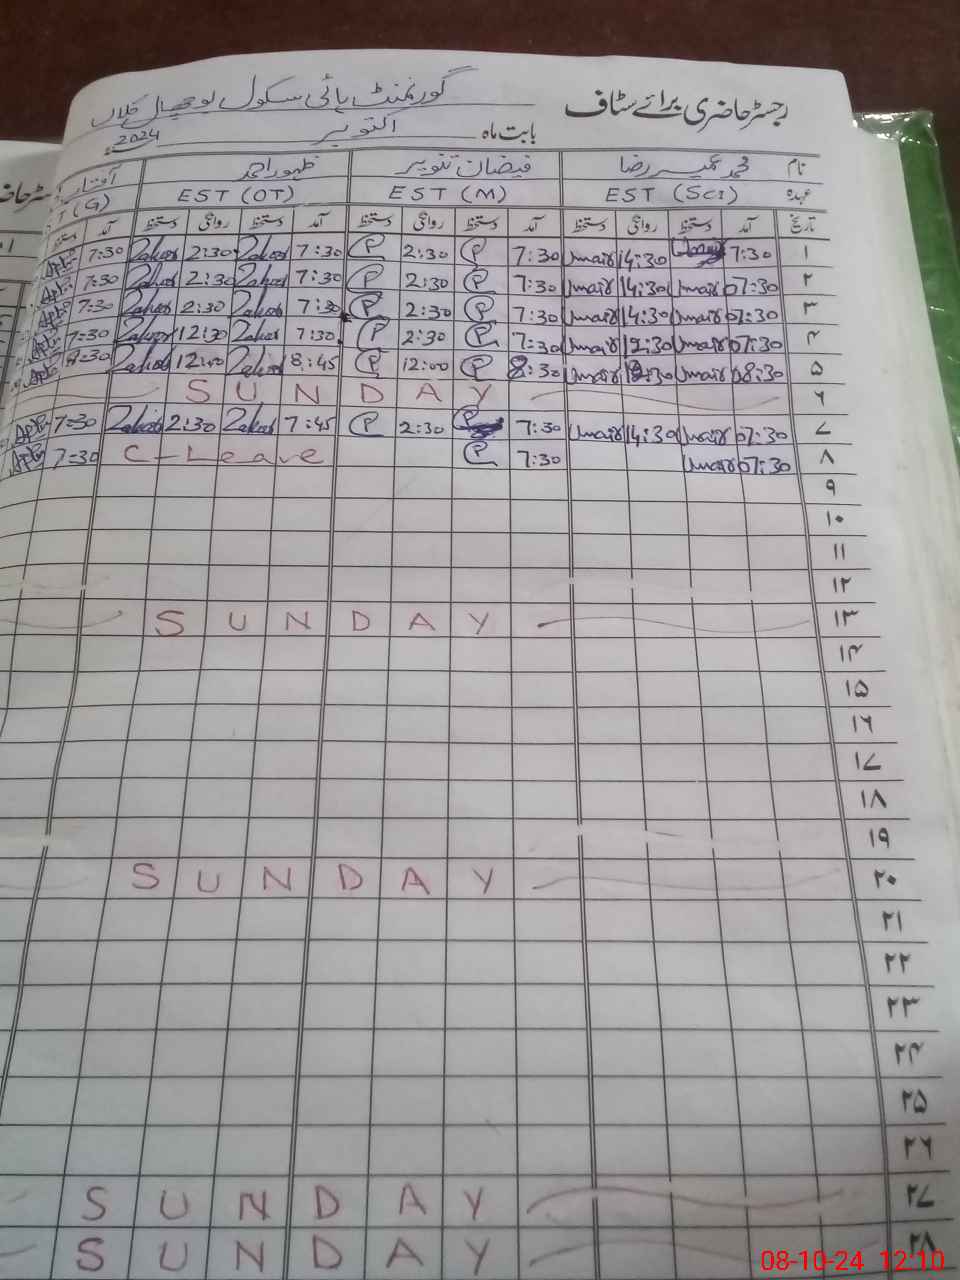 رجسٹر حاضری برائے سٹاف گورنمنٹ ہائی سکول
بابت ماہ اکتوبر 2024ء
نام محمد عمیر رضا فیضان تنویر ظہور احمد
عہدہ EST (Sci) EST (M) EST (OT)
تاریخ آمد دستخط روانگی دستخط آمد دستخط روانگی دستخط آمد دستخط روانگی دستخط آمد دستخط
۱ 7:30 14:30 Umair 7:30 P 2:30 P 7:30 Zahoor 2:30 Zahoor 7:30
۲ 07:30 Umair 14:30 Umair 7:30 P 2:30 P 7:30 Zahoor 2:30 Zahoor 7:30
۳ 07:30 Umair 14:30 Umair 7:30 P 2:30 P 7:30 Zahoor 2:30 Zahoor 7:30
۴ 07:30 Umair 12:30 Umair 7:30 P 2:30 P 7:30 Zahoor 12:30 Zahoor 7:30
۵ 08:30 Umair Umair 8:30 P 12:00 P 8:45 Zahoor 12:00 Zahoor 8:30
۶ SUNDAY
۷ 07:30 Umair 14:30 Umair 7:30 P 2:30 P 7:45 Zahoor 2:30 Zahoor 7:30
۸ 07:30 Umair 7:30 P C-Leave 7:30
۹
۱۰
۱۱
۱۲
۱۳ SUNDAY
۱۴
۱۵
۱۶
۱۷
۱۸
۱۹
۲۰ SUNDAY
۲۱
۲۲
۲۳
۲۴
۲۵
۲۶
۲۷ SUNDAY
۲۸ SUNDAY
08-10-24 12:10